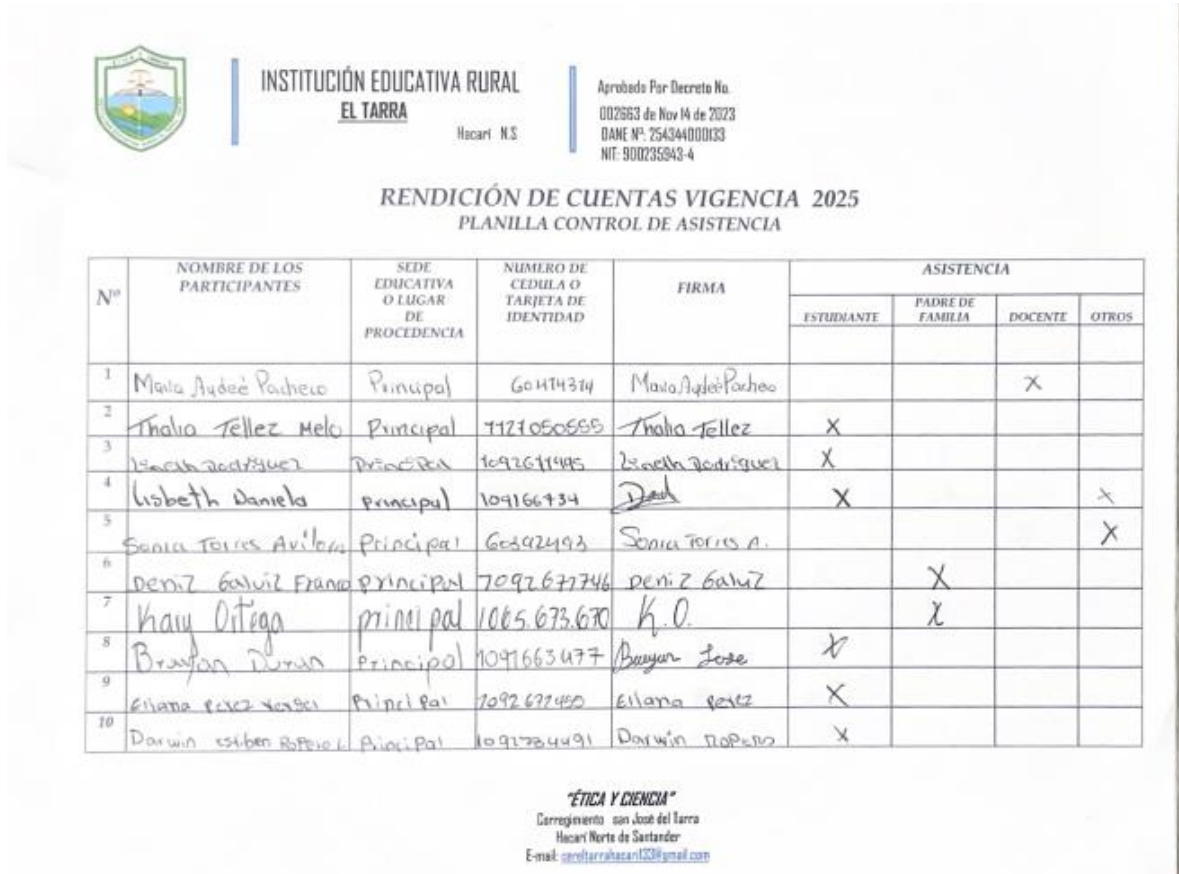 INSTITUCIÓN EDUCATIVA RURAL
EL TARRA
Hacarí N.S
Aprobado Por Decreto No.
002663 de Nov 14 de 2023
DANE Nº: 254344000133
NIT: 900235943-4
RENDICIÓN DE CUENTAS VIGENCIA 2025
PLANILLA CONTROL DE ASISTENCIA
Nº NOMBRE DE LOS PARTICIPANTES SEDE EDUCATIVA O LUGAR DE PROCEDENCIA NUMERO DE CEDULA O TARJETA DE IDENTIDAD FIRMA ASISTENCIA
ESTUDIANTE PADRE DE FAMILIA DOCENTE OTROS
1 Maria Aydeé Pacheco Principal Maria Aydeé Pacheco X
2 Thalia Tellez Melo Principal Thalia Tellez X
3 Rodriguez Principal Rodriguez X
4 Lisbeth Daniela principal 109166734 X X
5 Sonia Torres Principal Sonia Torres A. X
6 Deniz Galviz Franco principal Deniz Galviz X
7 Kary Ortega principal 1065.673.670 K.O. X
8 Brayan Duran Principal 1091663477 Brayan Jose X
9 Eliana Perez Principal Eliana Perez X
10 Darwin Estiben Principal Darwin Ropero X
"ÉTICA Y CIENCIA"
Corregimiento san José del Tarra
Hacarí Norte de Santander
E-mail: cereltarrahacari133@gmail.com